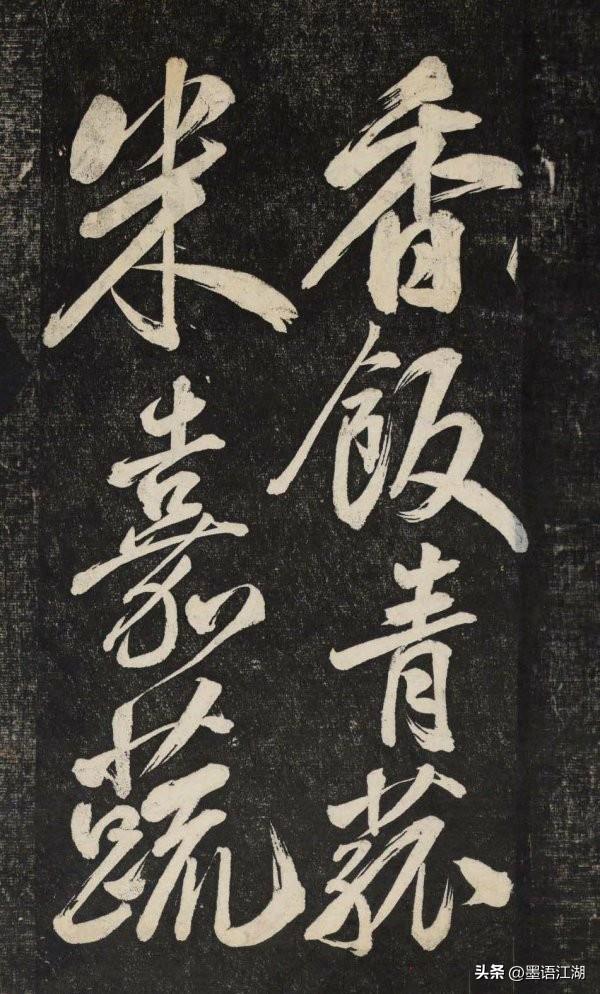 香飯青菰
米嘉蔬
头条 @墨语江湖